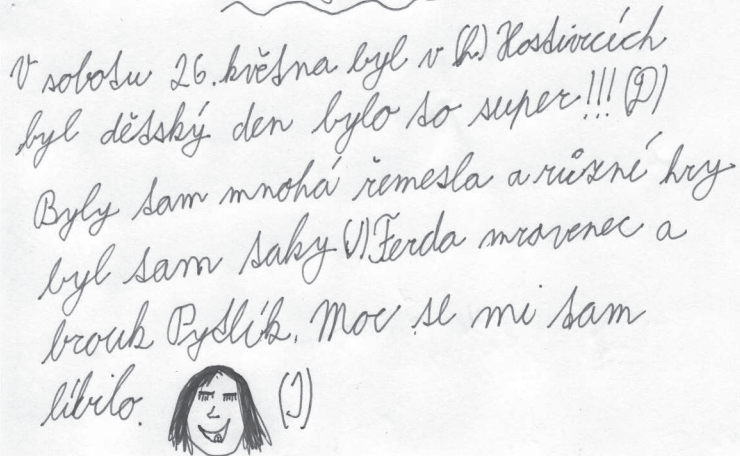 V sobotu 26. května byl v (h) Hostivicích
byl dětský den bylo to super!!! (D)
Byly tam mnohá řemesla a různé hry
byl tam taky (J) Ferda mravenec a
brouk Pytlík. Moc se mi tam
líbilo. (J)